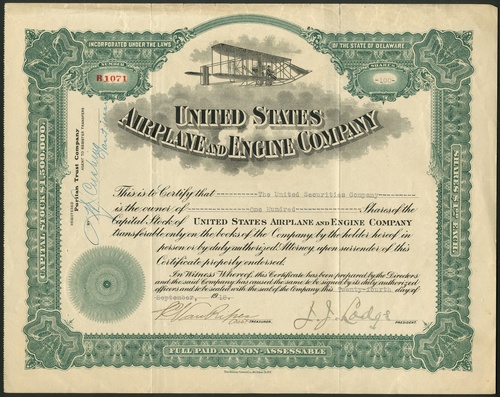 INCORPORATED UNDER THE LAWS
OF THE STATE OF DELAWARE
NUMBER
B1071
SHARES
-100-
UNITED STATES
AIRPLANE AND ENGINE COMPANY
CAPITAL STOCK $1,500,000.
REGISTERED
Puritan Trust Company
This is to Certify that The United Securities Company
is the owner of One Hundred Shares of the
Capital Stock of UNITED STATES AIRPLANE AND ENGINE COMPANY
transferable only on the books of the Company by the holder hereof in
person or by duly authorized Attorney upon surrender of this
Certificate properly endorsed.
In Witness Whereof, this Certificate has been prepared by the Directors
and the said Company has caused the same to be signed by its duly authorized
officers and to be sealed with the seal of the Company this Twenty-fourth day of
September, 1918.
TREASURER.
J. J. Lodge
PRESIDENT.
FULL PAID AND NON-ASSESSABLE